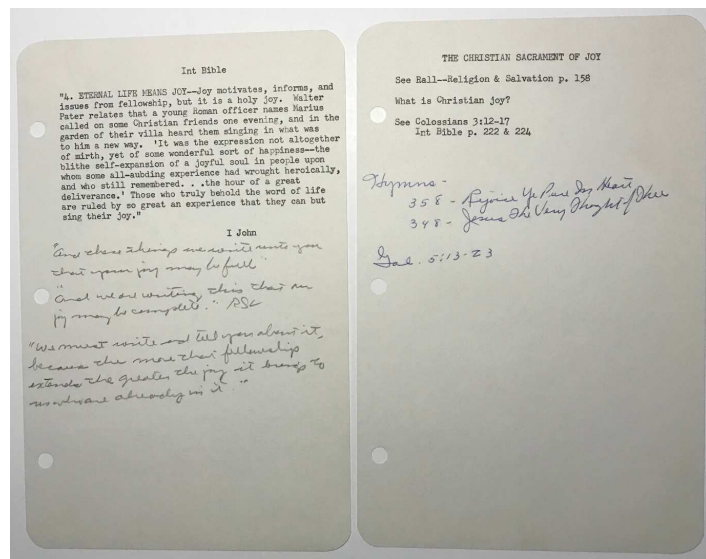 Int Bible
"4. ETERNAL LIFE MEANS JOY--Joy motivates, informs, and
issues from fellowship, but it is a holy joy. Walter
Pater relates that a young Roman officer names Marius
called on some Christian friends one evening, and in the
garden of their villa heard them singing in what was
to him a new way. 'It was the expression not altogether
of mirth, yet of some wonderful sort of happiness--the
blithe self-expansion of a joyful soul in people upon
whom some all-aubding experience had wrought heroically,
and who still remembered. . .the hour of a great
deliverance.' Those who truly behold the word of life
are ruled by so great an experience that they can but
sing their joy."
I John
"And these things we write unto you
that your joy may be full"
"And we are writing this that our
joy may be complete." RSV
"We must write and tell you about it,
because the more that fellowship
extends the greater the joy it brings to
us who are already in it."
THE CHRISTIAN SACRAMENT OF JOY
See Rall--Religion & Salvation p. 158
What is Christian joy?
See Colossians 3:12-17
Int Bible p. 222 & 224
Hymns -
358 - Rejoice Ye Pure In Heart
348 - Jesus The Very Thought of Thee
Gal. 5:13-23